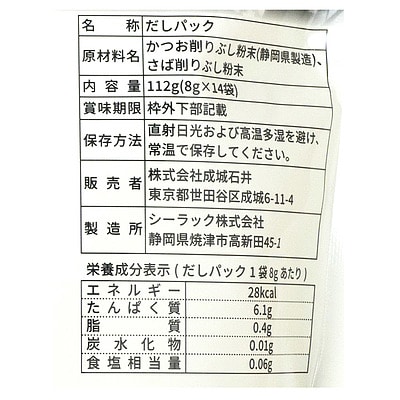 名称 だしパック
原材料名 かつお削りぶし粉末(静岡県製造)、
さば削りぶし粉末
内容量 112g(8g×14袋)
賞味期限 枠外下部記載
保存方法 直射日光および高温多湿を避け、
常温で保存してください。
販売者 株式会社成城石井
東京都世田谷区成城6-11-4
製造所 シーラック株式会社
静岡県焼津市高新田45-1
栄養成分表示(だしパック1袋8gあたり)
エネルギー 28kcal
たんぱく質 6.1g
脂質 0.4g
炭水化物 0.01g
食塩相当量 0.06g